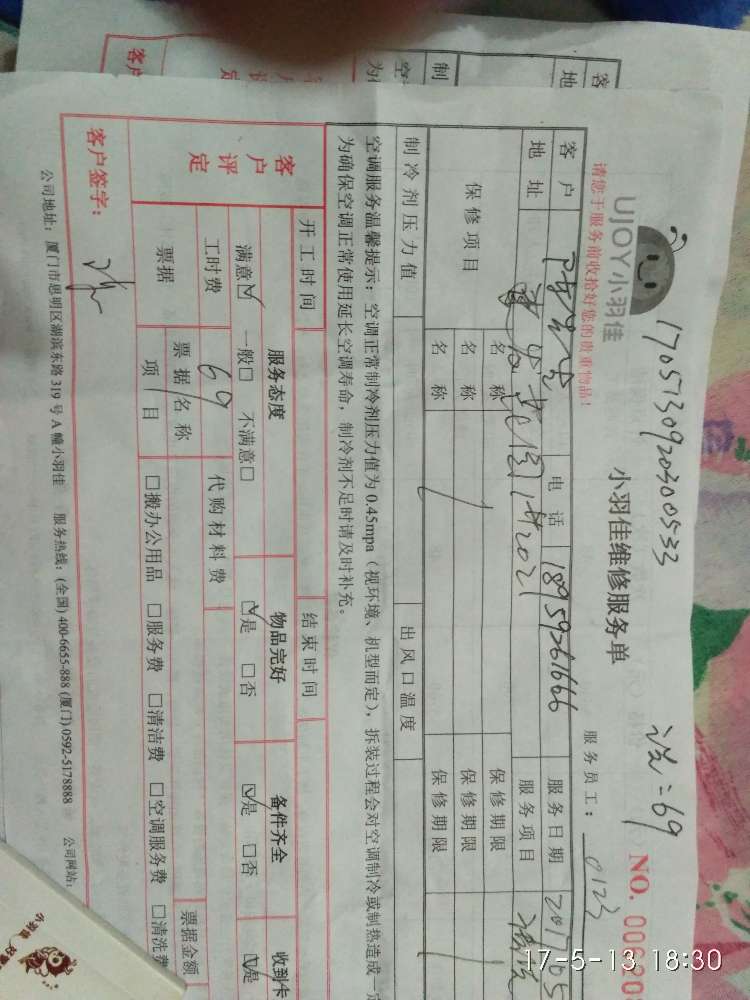 170513092030053 3
清=69
UJOY小羽佳
小羽佳维修服务单
NO. 000
请您于服务前收拾好您的贵重物品!
服务员工: 0123
客户 电话 18959261666 服务日期 2017.05
地址 2021 服务项目 清洗
保修项目 名称 保修期限
名称 保修期限
名称 保修期限
制冷剂压力值 出风口温度
空调服务温馨提示:空调正常制冷剂压力值为0.45mpa(视环境、机型而定),拆装过程会对空调制冷或制热造成一定
为确保空调正常使用延长空调寿命,制冷剂不足时请及时补充。
开工时间 结束时间
客户评定 服务态度 物品完好 备件齐全 收到卡
满意☑ 一般□ 不满意□ ☑是 □否 ☑是 □否 ☑是
工时费 69 代购材料费
票据 票据名称 票据金额
项目 □搬办公用品 □服务费 □清洁费 □空调服务费 □清洗费
客户签字:
公司地址:厦门市思明区湖滨东路319号A幢小羽佳 服务热线:(全国) 400-6655-888 (厦门) 0592-5178888 公司网站:
17-5-13 18:30